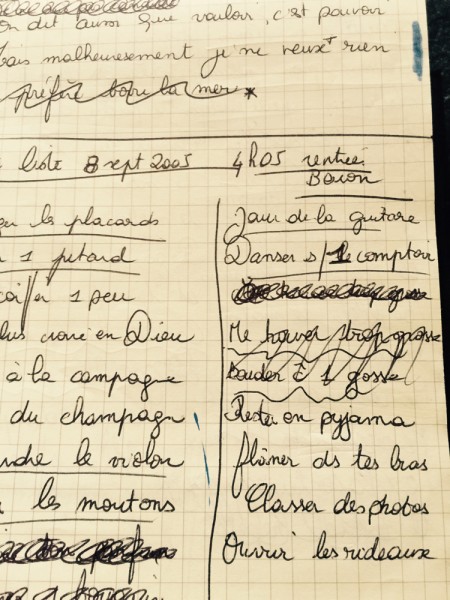 on dit aussi que vouloir, c'est pouvoir
Mais malheureusement je ne veux + rien
Préfère boire la mer *
liste 8 sept 2005 4h05 rentrée
Bacon
les placards
1 petard
1 peu
croire en Dieu
à la campagne
du champagn
le violon
les moutons
Jouer de la guitare
Danser s/ le comptoir
Me trouver trop grosse
Bouder c̄ 1 gosse
Rester en pyjama
flâner ds tes bras
Classer des photos
Ouvrir les rideaux